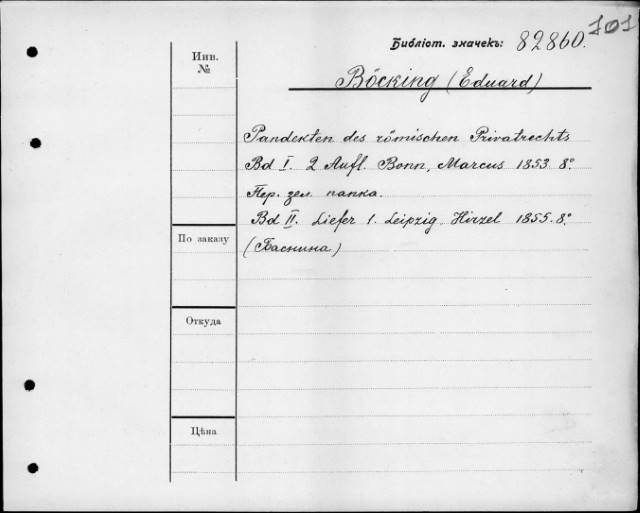 101
Библіот. значекъ: 82860.
Инв.
№
Böcking (Eduard)
Pandekten des römischen Privatrechts
Bd I. 2 Aufl. Bonn, Marcus 1853 8°
Пер. зел. папка.
Bd II. Liefer 1. Leipzig, Hirzel 1855. 8°
По заказу
(Баснина)
Откуда
Цѣна